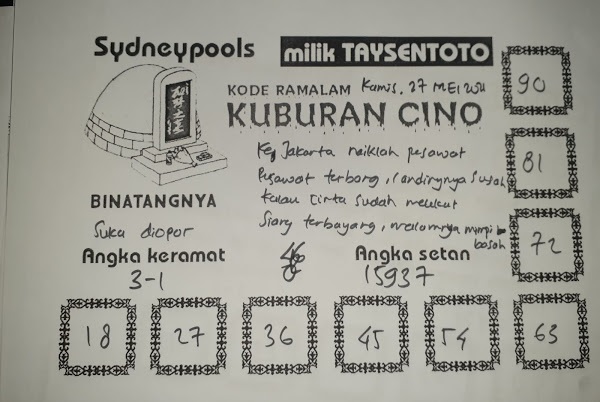 Sydneypools
milik TAYSENTOTO
90
KODE RAMALAM Kamis, 27 MEI 2021
KUBURAN CINO
Ke Jakarta naiklah pesawat
81
Pesawat terbang, Landingnya susah
BINATANGNYA
kalau Cinta sudah melekat
Suka diopor
Siang terbayang, malamnya mimpi
basah
72
Angka keramat
Angka setan
3-1
15937
18
27
36
45
54
63